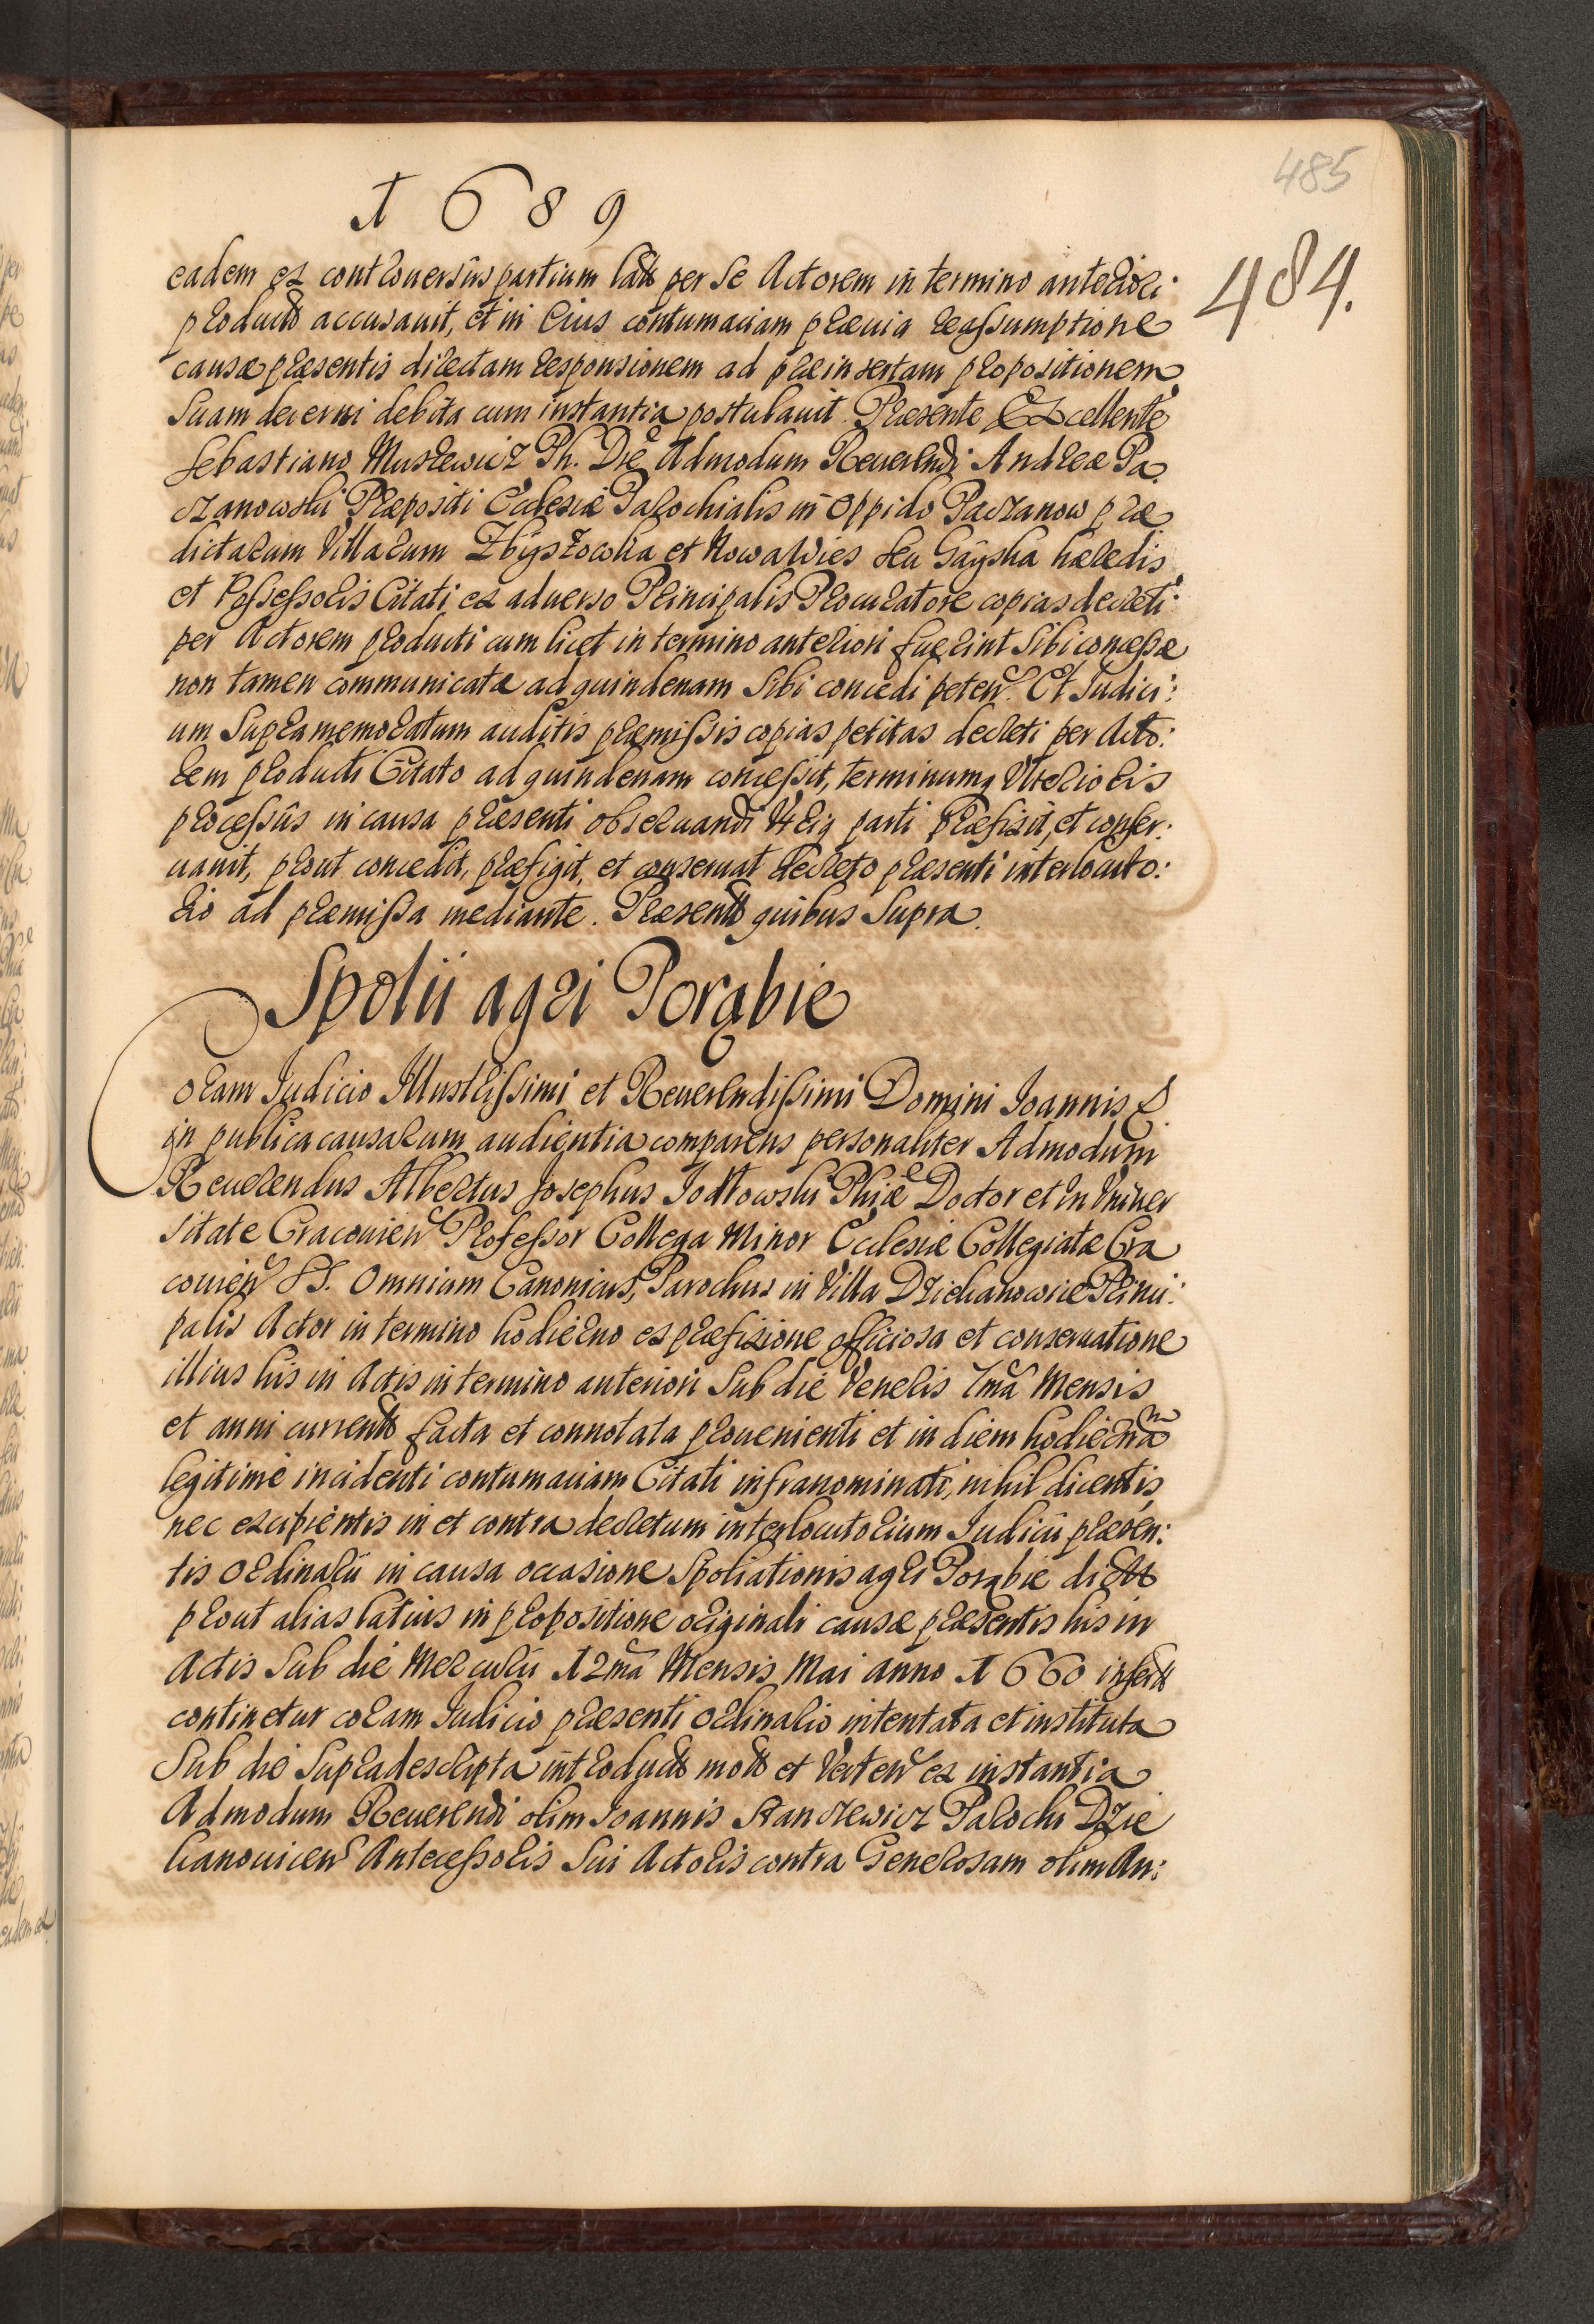 485
1689
484.
eadem ex controuersijs partium lat per se Actorem in termino anteriori
product accusauit, et in eius contumaciam præuia reassumptione
causæ præsentis directam responsionem ad præinsertam propositionem
suam decerni debita cum instantia postulauit. Præsente Excellente
Sebastiano Muszewicz Ph. Dre Admodum Reuerendi Andreæ Pa
czanowski Præpositi Ecclesiæ Parochialis in Oppido Paczanow præ
dictarum Villarum Zbyszowka et Nowawies seu Gayska hæredis
et Possessoris Citati ex aduerso Principalis Procuratore copias decreti
per Actorem producti cum licet in termino anteriori fuerint sibi concessæ
non tamen communicatæ ad quindenam sibi concedi peten. Et Iudici:
um supramemoratum auditis præmissis copias petitas decreti per Acto:
rem producti Citato ad quindenam concessit, terminumq Vlterioris
processus in causa præsenti obseruandi Vtriq parti præfixit, et conser:
uauit, prout concedit, præfigit, et conseruat decreto præsenti interlocuto:
rio ad præmissa mediante. Præsent quibus supra.
Spolii agri Porąbie
Coram Iudicio Illustrissimi et Reuerendissimi Domini Ioannis &
in publica causarum audientia comparens personaliter Admodum
Reuerendus Albertus Josephus Jodłowski Phiæ Doctor et in Vniuer
sitate Cracouien Professor Collega Minor Ecclesiæ Collegiatæ Cra
couien SS. Omnium Canonicus, Parochus in Villa Dziekanowice Princi:
palis Actor in termino hodierno ex præfixione officiosa et conseruatione
illius his in Actis in termino anteriori sub die Veneris 7ma Mensis
et anni current facta et connotata prouenienti et in diem hodiernam
legitime incidenti contumaciam Citati infranominati, nihil dicentis,
nec excipientis in et contra decretum interlocutorium Iudicii præsen:
tis Ordinarii in causa occasione Spoliationis agri Porąbie dict
prout alias latius in propositione originali causæ præsentis his in
Actis sub die Mercurii 12ma Mensis Mai anno 1660 insert
continetur coram Iudicio præsenti Ordinario intentata et instituta
sub die supradescripta introduct mot et Verten ex instantia
Admodum Reuerendi olim Joannis Stanczewicz Parochi Dzie
kanouicen Antecessoris sui Actoris contra Generosam olim An: